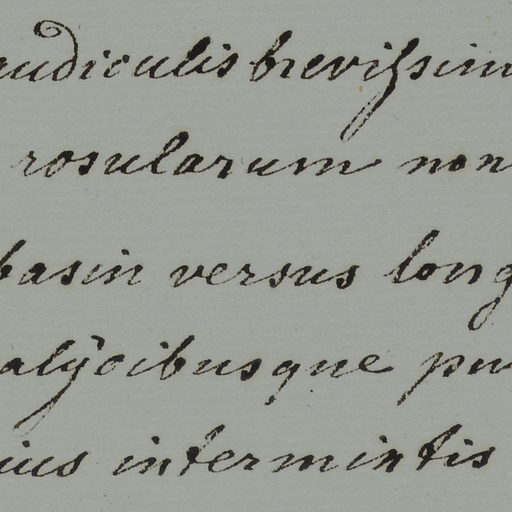 audiculis brevissim
rosularum non
basin versus long
alycibusque pu
ius intermixtis